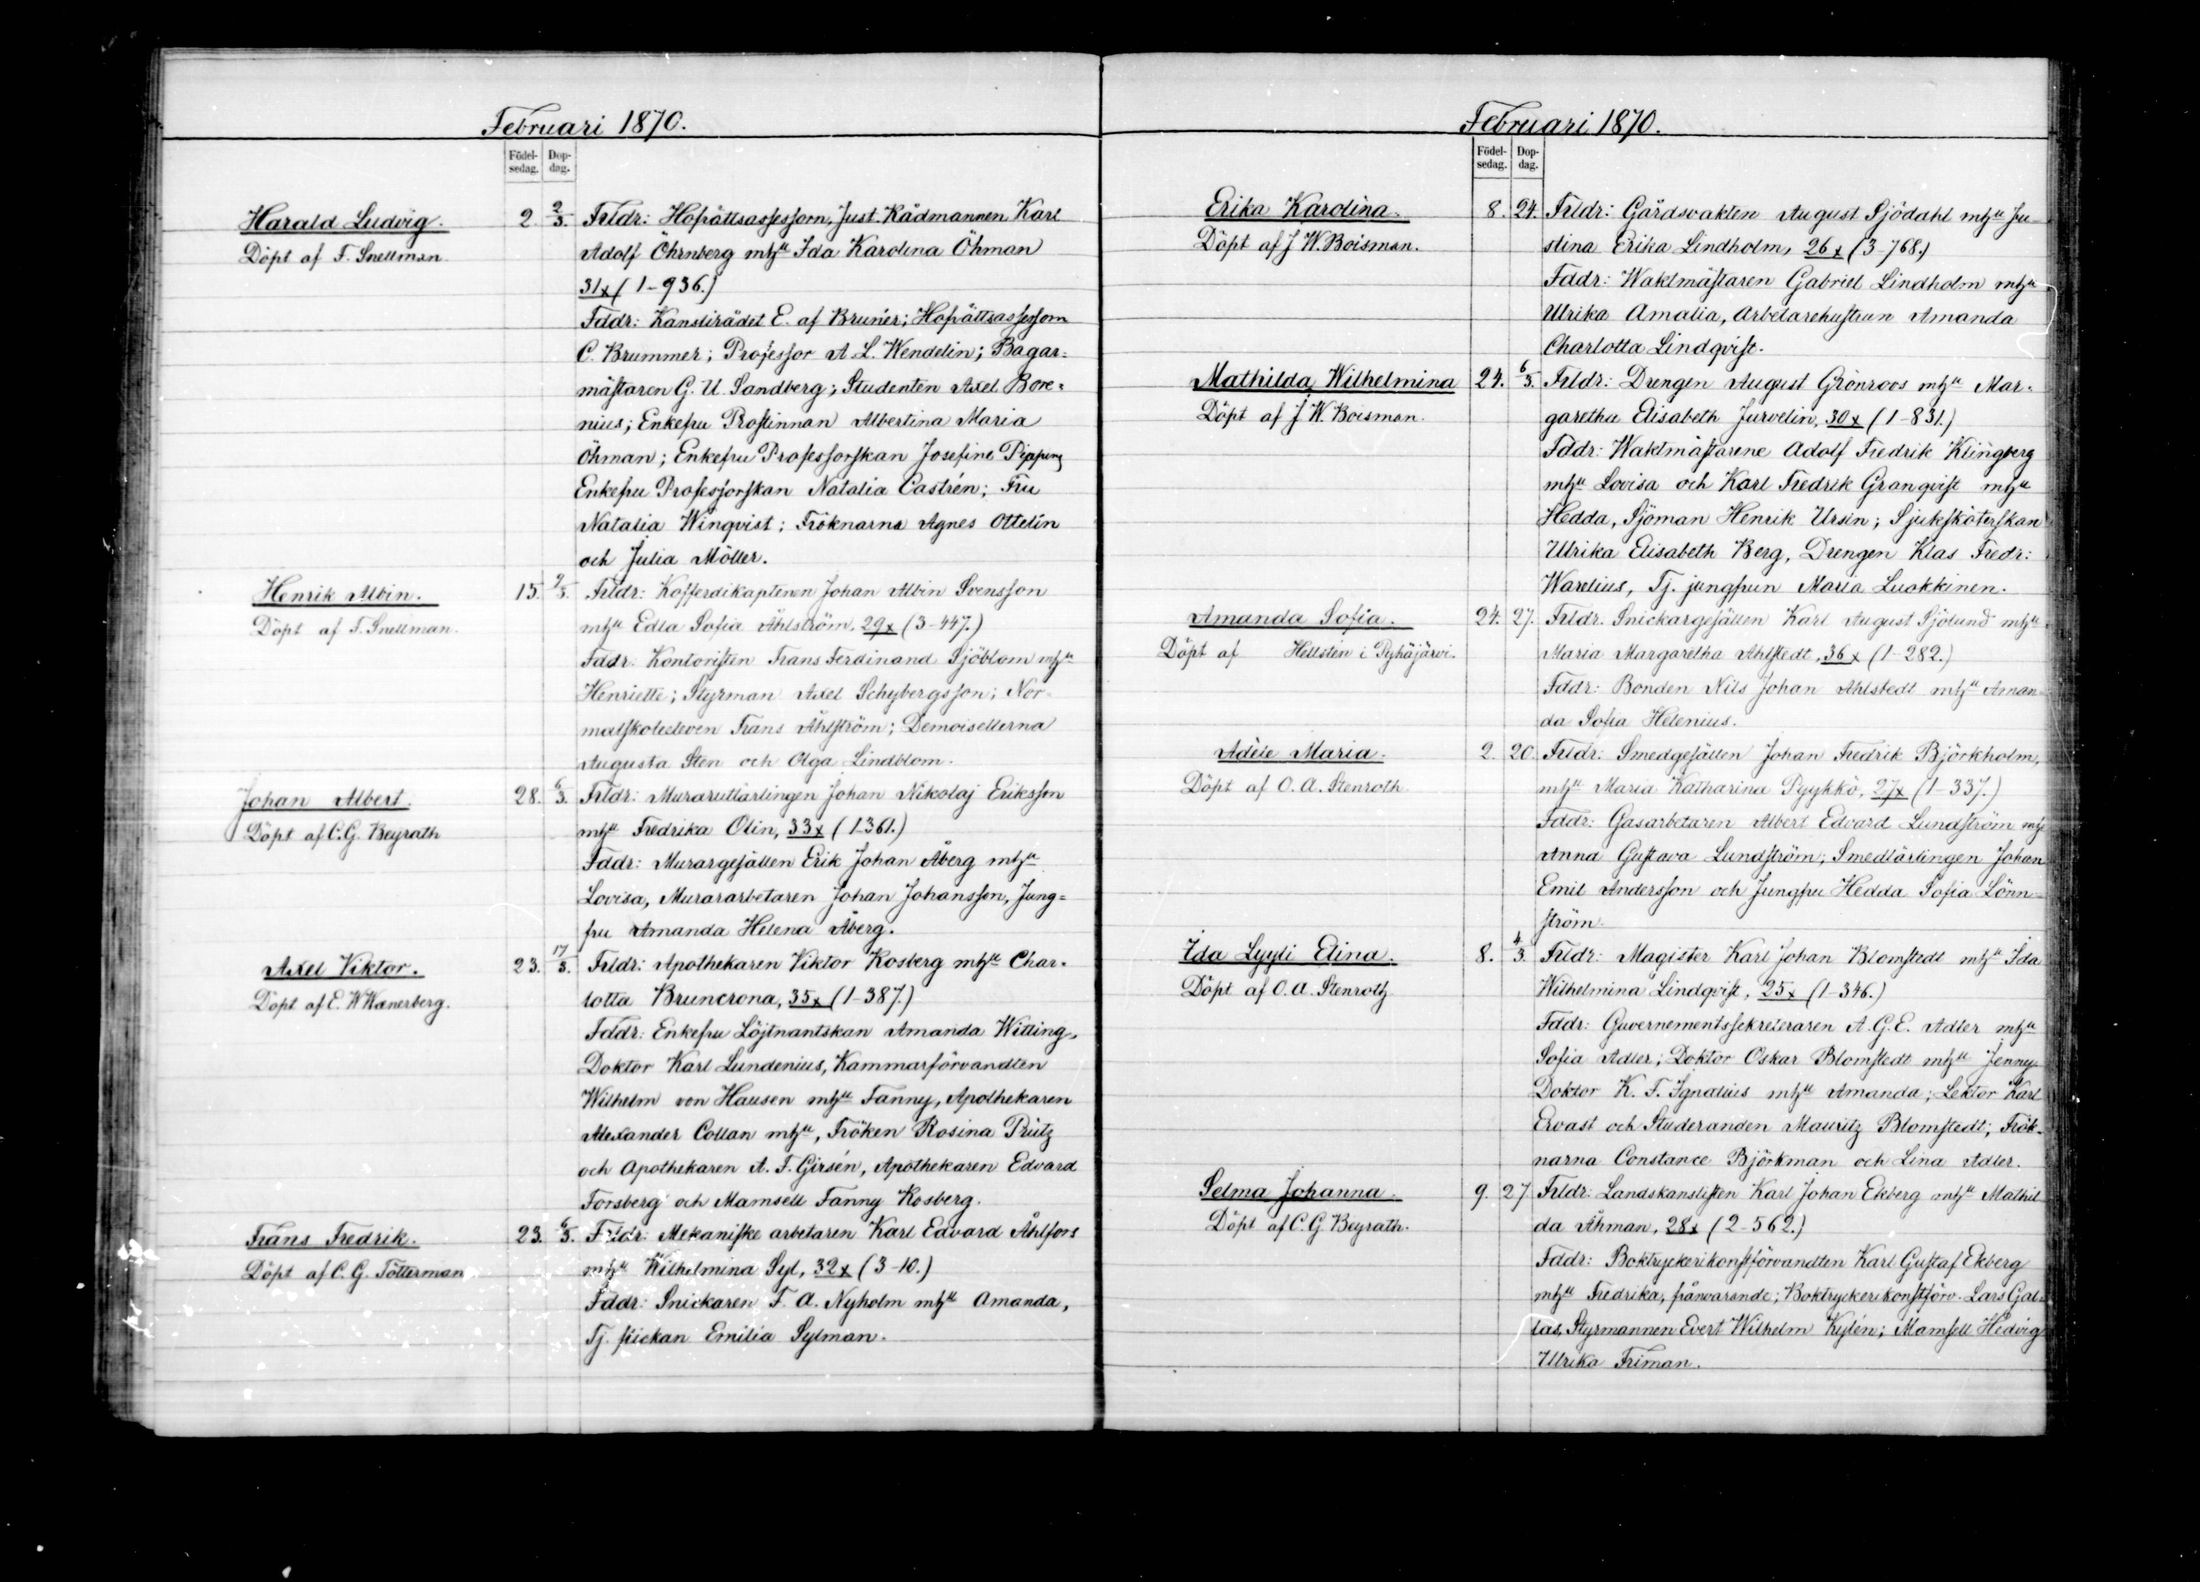 Februari 1870.
Födel-
sedag.
Dop-
dag.
Harald Ludvig.
Döpt af F. Snellman
2. 2/3. Frldr: Hofrättsassessorn, Just. Rådmannen Karl
Adolf Öhrnberg mhu Ida Karolina Öhman
31x (1-936.)
Fddr: Kanslirådet E. af Brunér; Hofrättsassessorn
C. Brummer; Professor A. L. Wendelin; Bagar-
mästaren G. U. Sandberg; Studenten Axel Bore-
nius; Enkefru Prostinnan Albertina Maria
Öhman; Enkefru Professorskan Josefine Pipping
Enkefru Professorskan Natalia Castrén; Fru
Natalia Winqvist; Fröknarna Agnes Ottelin
och Julia Möller.
Henrik Albin.
Döpt af F. Snellman.
15. 9/3. Frldr: Kofferdikaptenen Johan Albin Svensson
mhu Edla Sofia Åhlström, 29x (3-447.)
Fddr: Kontoristen Frans Ferdinand Sjöblom mhu
Henriette; Styrman Axel Schybergsson; Nor-
malskoleeleven Frans Åhlström; Demoisellerna
Augusta Sten och Olga Lindblom.
Johan Albert.
Döpt af C. G. Beyrath
28. 6/3. Frldr: Murarelärlingen Johan Nikolaj Eriksson
mhu Fredrika Olin, 33x (1-361.)
Fddr: Murargesällen Erik Johan Åberg mhu
Lovisa, Murararbetaren Johan Johansson, Jung-
fru Amanda Helena Åberg.
Axel Viktor.
Döpt af E. W. Wanerberg.
23. 17/3. Frldr: Apothekaren Viktor Kosberg mhu Char-
lotta Bruncrona, 35x (1-387.)
Fddr: Enkefru Löjtnantskan Amanda Witting,
Doktor Karl Lundenius, Kammarförvandten
Wilhelm von Hausen mhu Fanny, Apothekaren
Alexander Collan mhu, Fröken Rosina Prütz
och Apothekaren A. F. Girsén, Apothekaren Edvard
Forsberg och Mamsell Fanny Kosberg.
Frans Fredrik.
Döpt af C. G. Tötterman
23. 6/3. Frldr: Mekaniske arbetaren Karl Edvard Åhlfors
mhu Wilhelmina Syl, 32x (3-10.)
Fddr: Snickaren F. A. Nyholm mhu Amanda,
Tj. flickan Emilia Sylman.
Februari 1870.
Födel-
sedag.
Dop-
dag.
Erika Karolina.
Döpt af J. W. Boisman.
8. 24. Frldr: Gårdsvakten August Sjödahl mhu Ju-
stina Erika Lindholm, 26x (3-768.)
Fddr: Waktmästaren Gabriel Lindholm mhu
Ulrika Amalia, Arbetarehustrun Amanda
Charlotta Lindqvist.
Mathilda Wilhelmina
Döpt af J. W. Boisman.
24. 6/3. Frldr: Drengen August Grönroos mhu Mar-
garetha Elisabeth Jurvelin, 30x (1-831.)
Fddr: Waktmästarene Adolf Fredrik Klingberg
mhu Lovisa och Karl Fredrik Granqvist mhu
Hedda, Sjöman Henrik Ursin; Sjuksköterskan
Ulrika Elisabeth Berg, Drengen Klas Fredr:
Warelius, Tj. jungfrun Maria Luokkinen.
Amanda Sofia.
Döpt af Hellstén i Pyhäjärvi.
24. 27. Frldr. Snickargesällen Karl August Sjölund mhu
Maria Margaretha Ahlstedt, 36x (1-282.)
Fddr: Bonden Nils Johan Ahlstedt mhu Aman-
da Sofia Helenius.
Adèle Maria.
Döpt af O. A. Stenroth
2. 20. Frldr: Smedgesällen Johan Fredrik Björkholm,
mhu Maria Katharina Pyykkö, 27x (1-337.)
Fddr: Gasarbetaren Albert Edvard Lundström mhu
Anna Gustava Lundström; Smedlärlingen Johan
Emil Andersson och Jungfru Hedda Sofia Lönn-
ström.
Ida Lyyli Elina.
Döpt af O. A. Stenroth
8. 4/3. Frldr: Magister Karl Johan Blomstedt mhu Ida
Wilhelmina Lindqvist, 25x (1-346.)
Fddr: Guvernementssekreteraren A. G. E. Adler mhu
Sofia Adler; Doktor Oskar Blomstedt mhu Jenny
Doktor K. F. Ignatius mhu Amanda; Lektor Karl
Ervast och Studeranden Mauritz Blomstedt; Frök-
narna Constance Björkman och Lina Adler.
Selma Johanna.
Döpt af C. G. Beyrath.
9. 27. Frldr: Landskanslisten Karl Johan Ekberg mhu Mathil
da Åhman, 28x (2-562.)
Fddr: Boktryckerikonstförvandten Karl Gustaf Ekberg
mhu Fredrika, frånvarande; Boktryckerikonstförv. Lars Gal-
las, Styrmannen Evert Wilhelm Kylén; Mamsell Hedvig
Ulrika Friman.